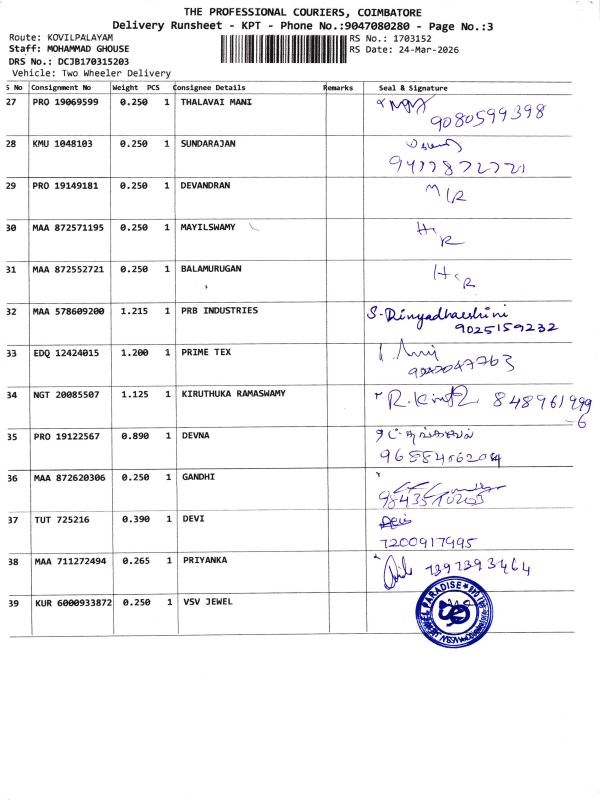 THE PROFESSIONAL COURIERS, COIMBATORE
Delivery Runsheet - KPT - Phone No.:9047080280 - Page No.:3
Route: KOVILPALAYAM
RS No.: 1703152
Staff: MOHAMMAD GHOUSE
RS Date: 24-Mar-2026
DRS No.: DCJB170315203
Vehicle: Two Wheeler Delivery
S No Consignment No Weight PCS Consignee Details Remarks Seal & Signature
27 PRO 19069599 0.250 1 THALAVAI MANI
9080599398
28 KMU 1048103 0.250 1 SUNDARAJAN
29 PRO 19149181 0.250 1 DEVANDRAN
30 MAA 872571195 0.250 1 MAYILSWAMY
31 MAA 872552721 0.250 1 BALAMURUGAN
32 MAA 578609200 1.215 1 PRB INDUSTRIES S. Divyadharshini
9025159232
33 EDQ 12424015 1.200 1 PRIME TEX
34 NGT 20085507 1.125 1 KIRUTHUKA RAMASWAMY
35 PRO 19122567 0.890 1 DEVNA
36 MAA 872620306 0.250 1 GANDHI
37 TUT 725216 0.390 1 DEVI
7200917995
38 MAA 711272494 0.265 1 PRIYANKA 7397393464
39 KUR 6000933872 0.250 1 VSV JEWEL
PARADISE